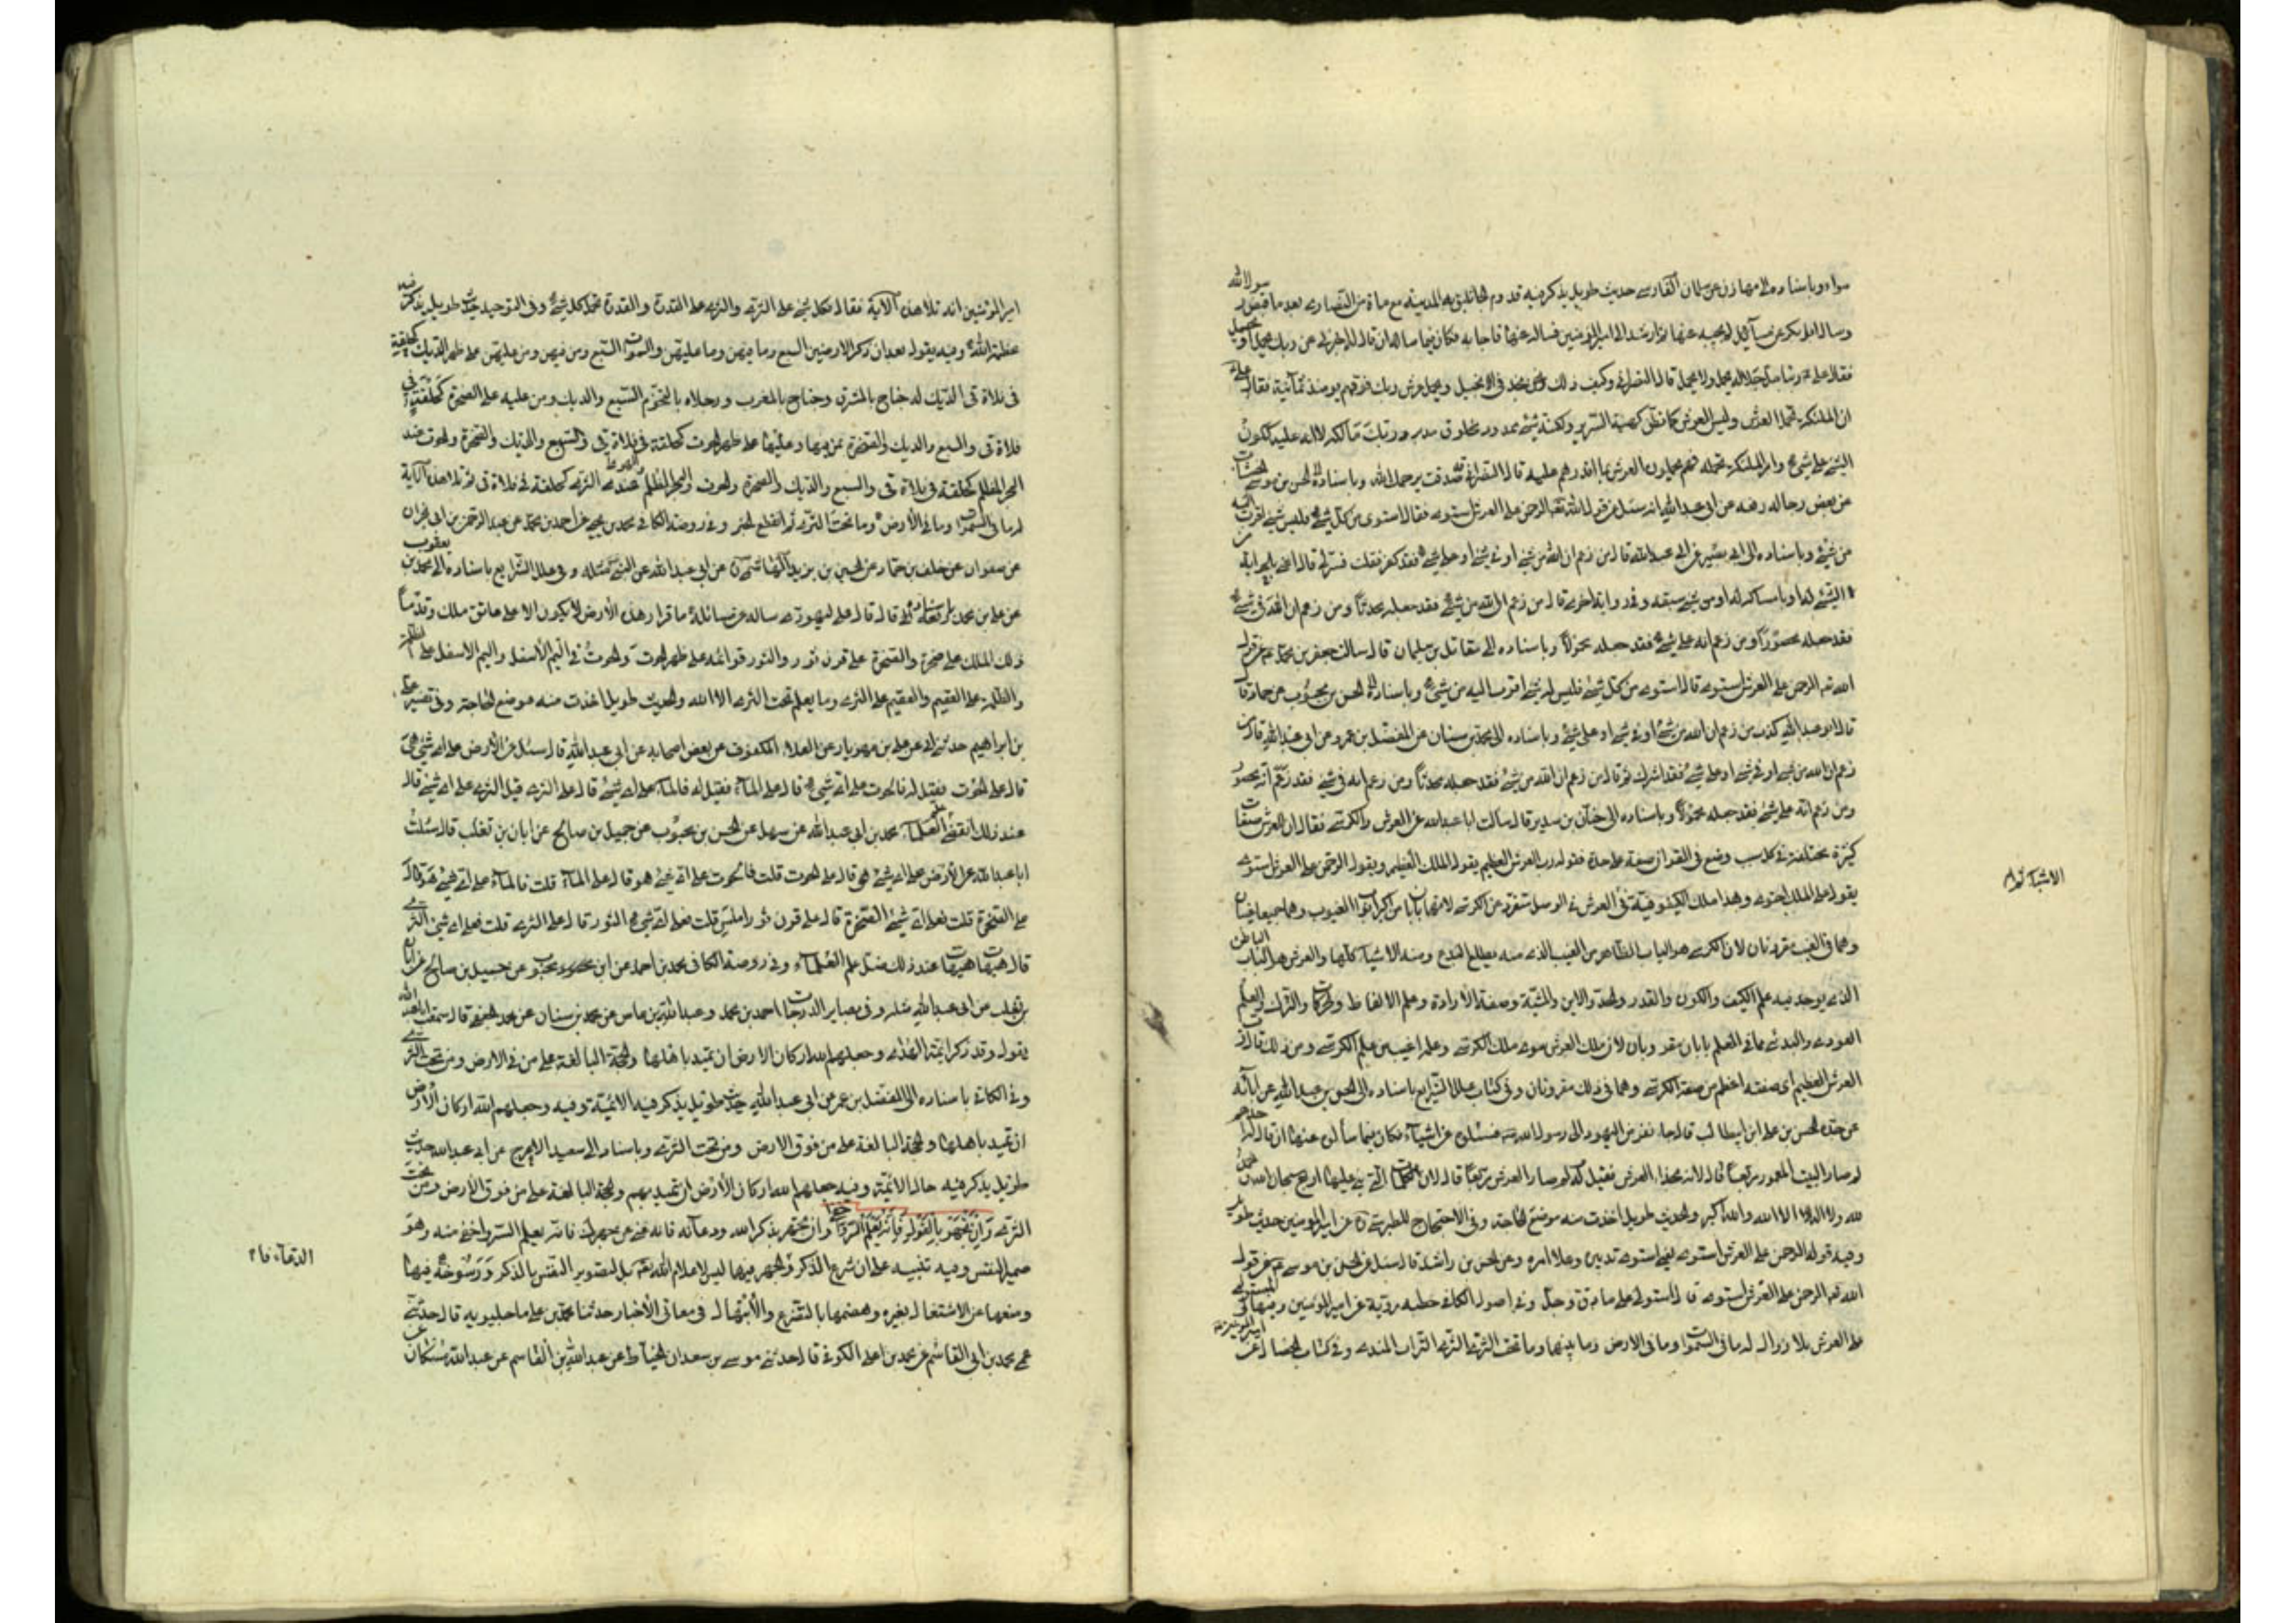 سواء وباسناده الى مهازن عن سلمان الفارسى حديث طويل يذكر فيه قدوم الجاثليق المدينة مع ماة من النصارى بعد ما قبض رسول الله
وساله ابا بكر عن مسآئل لم يجبه عنها ثم ارشد الى امير المؤمنين فساله عنها فاجابه فكان فيما ساله ان قال له اخبرنى عن ربك يحمل او يحمل
فقال على ان ربنا جل جلاله يحمل ولا يحمل قال النصرانى وكيف ذلك ونحن نجد فى الانجيل ويحمل عرش ربك فوقهم يومئذ ثمآنية فقال على
ان الملئكة تحمل العرش وليس العرش كما تظن كهيئة السرير ولكنه شئ محدود مخلوق مدبر وربك مالكه لا انه عليه ككون
الشئ على شئ وامر الملئكة بحمله فهم يحملون العرش بما اقدرهم عليه قال النصرانى صدقت يرحمك الله وباسناده الى الحسن بن موسى الخشاب
عن بعض رجاله رفعه عن ابى عبد الله انه سئل عن قول الله الرحمن على العرش استوى فقال استوى من كل شئ فليس شئ اقرب اليه
من شئ وباسناده الى ابى بصير عن ابى عبد الله قال من زعم ان الله من شئ او فى شئ او على شئ فقد كفر قلت فسر لى قال اعنى بالحواية
من الشئ له او بامساك له او من شئ سبقه وفى رواية اخرى قال من زعم ان الله من شئ فقد جعله محدثا ومن زعم انه فى شئ
فقد جعله محصورا ومن زعم انه على شئ فقد جعله محمولا وباسناده الى مقاتل بن سليمان قال سالت جعفر بن محمد عن قول
الله الرحمن على العرش استوى قال استوى من كل شئ فليس شئ اقرب اليه من شئ وباسناده الى الحسن بن محبوب عن حماد قال
قال ابو عبد الله كذب من زعم ان الله من شئ او فى شئ او على شئ وباسناده الى محمد بن سنان عن المفضل بن عمر عن ابى عبد الله قال من
زعم ان الله من شئ او فى شئ او على شئ فقد اشرك ثم قال من زعم ان الله من شئ فقد جعله محدثا ومن زعم انه فى شئ فقد زعم انه محصور
ومن زعم انه على شئ فقد جعله محمولا وباسناده الى حنان بن سدير قال سالت ابا عبد الله عن العرش والكرسى فقال ان للعرش صفات
كثيرة مختلفة فى كل سبب وضع فى القران صفة على حدة فقوله رب العرش العظيم يقول الملك العظيم ويقول الرحمن على العرش استوى
يقول على الملك احتوى وهذا ملك الكيفوفية فى الاشياء ثم العرش فى الوصل متفرد من الكرسى لانهما بابان من اكبر ابواب الغيوب وهما جميعا غيبان
وهما فى الغيب مقرونان لان الكرسى هو الباب الظاهر من الغيب الذى منه مطلع البدع ومنه الاشيآء كلها والعرش هو الباب الباطن
الذى يوجد فيه علم الكيف والكون والقدر والحد والاين والمشية وصفة الارادة وعلم الالفاظ والحركات والترك وعلم
العود والبدء فهما فى العلم بابان مقرونان لان ملك العرش سوى ملك الكرسى وعلمه اغيب من علم الكرسى ومن ذلك قال رب
العرش العظيم اى صفته اعظم من صفة الكرسى وهما فى ذلك مقرونان وفى كتاب علل الشرايع باسناده الى الحسن بن عبد الله عن ابآئه
عن جده الحسن بن على ابن ابيطالب قال جاء نفر من اليهود الى رسول الله فسئلوه عن اشيآء فكان فيما سألوه عنها ان قال له احدهم
لم صار البيت المعمور مربعا قال لانه بحذاء العرش فقيل له لم صار العرش مربعا قال لان الكلمات التى بنى عليها اربع سبحان الله والحمد
لله ولا اله الا الله والله اكبر والحديث طويل اخذت منه موضع الحاجة وفى الاحتجاج للطبرسى عن امير المؤمنين حديث طويل
وفيه قوله الرحمن على العرش استوى يعنى استوى تدبيره وعلا امره وعن الحسن بن راشد قال سئل ابو الحسن موسى عن قول
الله الرحمن على العرش استوى قال استولى على ما دق وجل وفى اصول الكافى خطبة مروية عن امير المؤمنين وفيها المستولى
على العرش بلا زوال له ما فى السموات وما فى الارض وما بينهما وما تحت الثرى الثرى التراب الندى وفى كتاب الخصال عن
الاشياء ثم
امير المؤمنين انه تلا هذه الآية فقال فكل شئ على الثرى والثرى على القدرة والقدرة تحمل كل شئ وفى التوحيد حديث طويل يذكر فيه
عظمة الله وفيه يقول بعد ان ذكر الارضين السبع وما فيهن وما عليهن والسموات السبع ومن فيهن ومن عليهن على ظهر الديك كحلقة
فى فلاة قى الديك له جناح بالمشرق وجناح بالمغرب ورجلاه بالتخوم السبع والديك ومن عليه على الصخرة كحلقة فى
فلاة قى والسبع والديك والصخرة بمن فيها وعليها على ظهر الحوت كحلقة فى فلاة قى والسبع والديك والصخرة والحوت عند
البحر المظلم كحلقة فى فلاة قى والسبع والديك والصخرة والحوت والبحر المظلم عند الثرى كحلقة فى فلاة قى ثم تلا هذه الآية
له ما فى السموات وما فى الأرض وما تحت الثرى ثم انقطع الخبر وفى روضة الكافى محمد بن يحيى عن احمد بن محمد عن عبد الرحمن بن ابى نجران
عن صفوان عن خلف بن حماد عن الحسين بن يزيد الهاشمى عن ابى عبد الله عن النبى مثله وفى علل الشرايع باسناده الى محمد بن يعقوب
عن على بن محمد باسناده رفعه قال قال على ليهودى ساله عن مسائل اما قرار هذه الأرض لا يكون الا على عاتق ملك وقدما
ذلك الملك على صخرة والصخرة على قرن ثور والثور قوائمه على ظهر الحوت والحوت فى اليم الأسفل واليم الاسفل على الظلمة
والظلمة على العقيم والعقيم على الثرى وما يعلم تحت الثرى الا الله والحديث طويل اخذت منه موضع الحاجة وفى تفسير على
بن ابراهيم حدثنى ابى عن على بن مهزيار عن العلاء المكفوف عن بعض اصحابه عن ابى عبد الله قال سئل عن الارض على اى شئ هى
قال على الحوت فقيل له فالحوت على اى شئ قال على المآء فقيل له فالمآء على اى شئ قال على الثرى قيل فالثرى على اى شئ قال
عند ذلك انقضى علم العلمآء محمد بن ابى عبد الله عن سهل عن الحسن بن محبوب عن جميل بن صالح عن ابان بن تغلب قال سئلت
ابا عبد الله عن الأرض على اى شئ هى قال على الحوت قلت فالحوت على اى شئ هو قال على المآء قلت فالمآء على اى شئ هو قال
على الصخرة قلت فعلى اى شئ الصخرة قال على قرن ثور املس قلت فعلى اى شئ الثور قال على الثرى قلت فعلى اى شئ الثرى
قال هيهات هيهات عند ذلك ضل علم العلمآء وفى روضة الكافى محمد بن احمد عن ابن محبوب عن جميل بن صالح عن ابان
بن تغلب عن ابى عبد الله مثله وفى بصاير الدرجات احمد بن محمد وعبد الله بن عامر عن محمد بن سنان عن قال سمعت ابا عبد الله
يقول وقد ذكر ائمة الهدى وجعلهم الله اركان الارض ان تميد باهلها والحجة البالغة على من فى الارض ومن تحت الثرى
وفى الكافى باسناده الى المفضل بن عمر عن ابى عبد الله حديث طويل يذكر فيه الائمة وفيه وجعلهم الله اركان الأرض
ان تميد باهلها والحجة البالغة على من فوق الارض ومن تحت الثرى وباسناده الى سعيد الاعرج عن ابى عبد الله حديث
طويل يذكر فيه حال الائمة وفيه جعلهم الله اركان الأرض ان تميد بهم والحجة البالغة على من فوق الأرض ومن تحت
الثرى وان تجهر بالقول فانه يعلم السر واخفى وان تجهر بذكر الله ودعآئه فانه غنى عن جهرك فانه يعلم السر واخفى منه وهو
ضمير النفس وفيه تنبيه على ان شرع الذكر والجهر فيها ليس لاعلام الله بل لتصوير النفس بالذكر ورسوخه فيها
ومنعها عن الاشتغال بغيره وهضمها بالتضرع والأبتهال فى معانى الأخبار حدثنا محمد بن على ماجيلويه قال حدثنى
عمى محمد بن ابى القاسم عن محمد بن على الكوفى قال حدثنى موسى بن سعدان الحناط عن عبد الله بن القاسم عن عبد الله بن مسكان عن
الدعآء فا